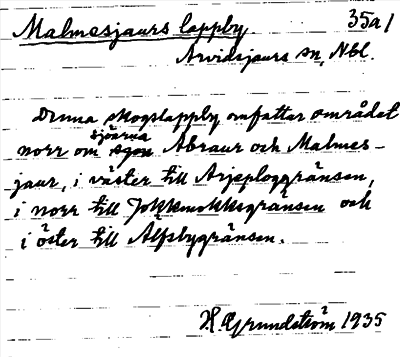 Malmesjaurs lappby. 35a1
Arvidsjaurs sn, Nbl.
Denna skogslappby omfattar området
norr om sjöarna Abraur och Malmes-
jaur, i väster till Arjeploggränsen,
i norr till Jokkmokksgränsen och
i öster till Älfsbygränsen.
H. Grundström 1935